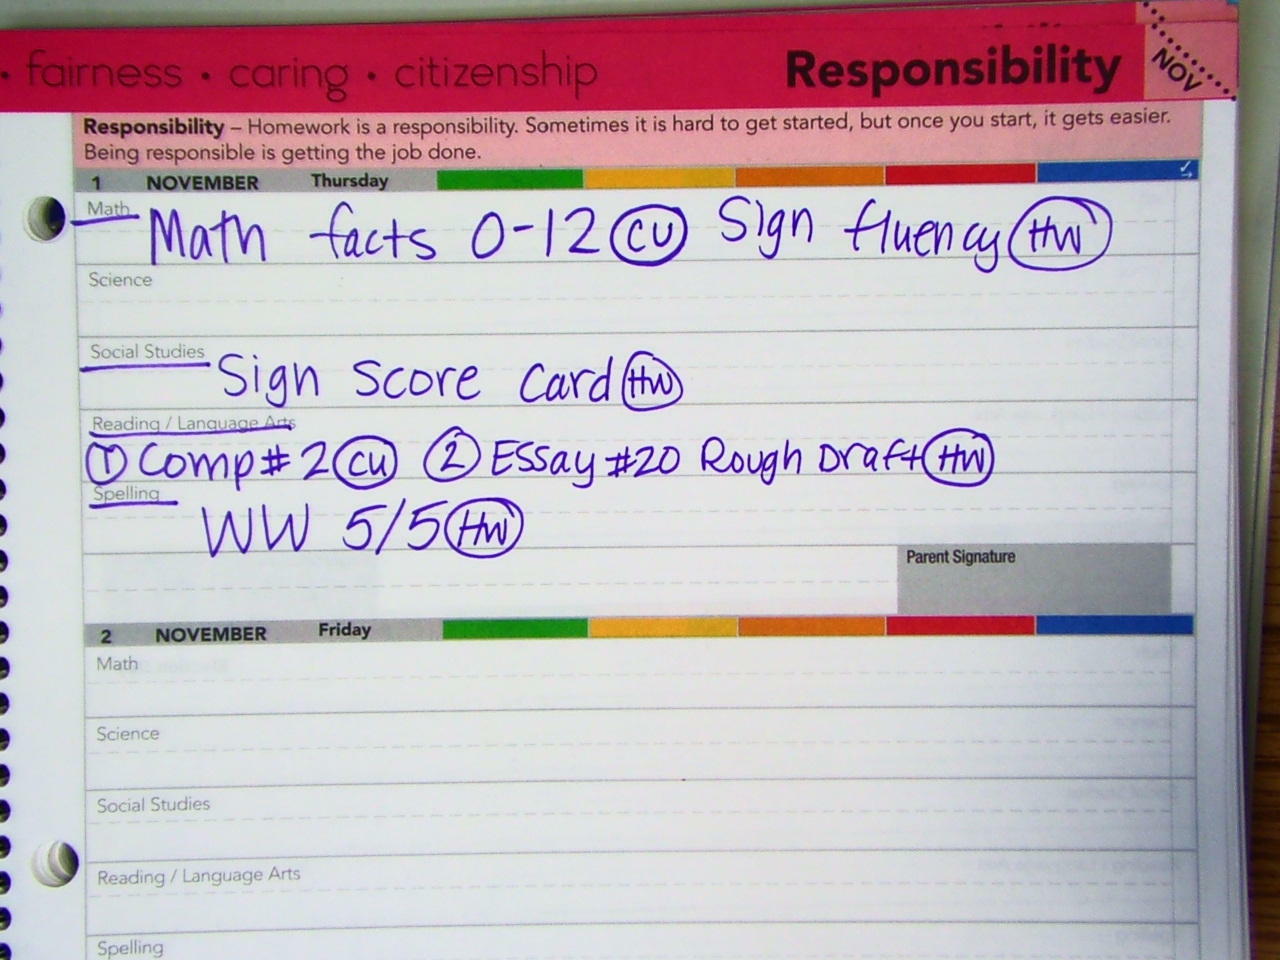 • fairness • caring • citizenship Responsibility NOV
Responsibility – Homework is a responsibility. Sometimes it is hard to get started, but once you start, it gets easier.
Being responsible is getting the job done.
1 NOVEMBER Thursday
Math Math facts 0-12 CU Sign fluency HW
Science
Social Studies Sign Score Card HW
Reading / Language Arts
1 Comp# 2 CU 2 Essay #20 Rough Draft HW
Spelling
WW 5/5 HW
Parent Signature
2 NOVEMBER Friday
Math
Science
Social Studies
Reading / Language Arts
Spelling